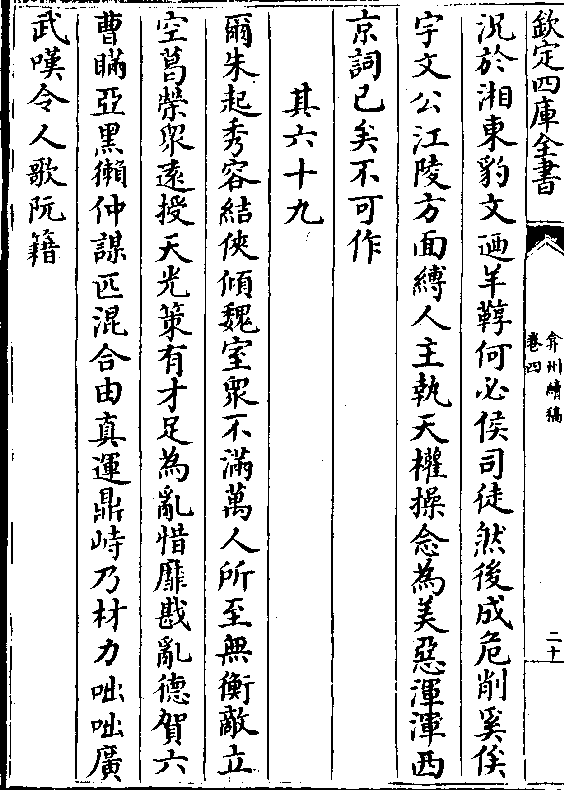 欽定四庫全書
弇州續稿
卷四
二十
況於湘東豹文迺羊鞟何必侯司徒然後成危削奚俟
宇文公江陵方面縛人主執天權操念為美惡渾渾西
京詞已矣不可作
其六十九
爾朱起秀容結俠傾魏室衆不滿萬人所至無衡敵立
空葛榮衆遠授天光策有才足為亂惜靡戡亂德賀六
曹瞞亞黑獺仲謀匹混合由真運鼎峙乃材力咄咄廣
武嘆令人歌阮籍